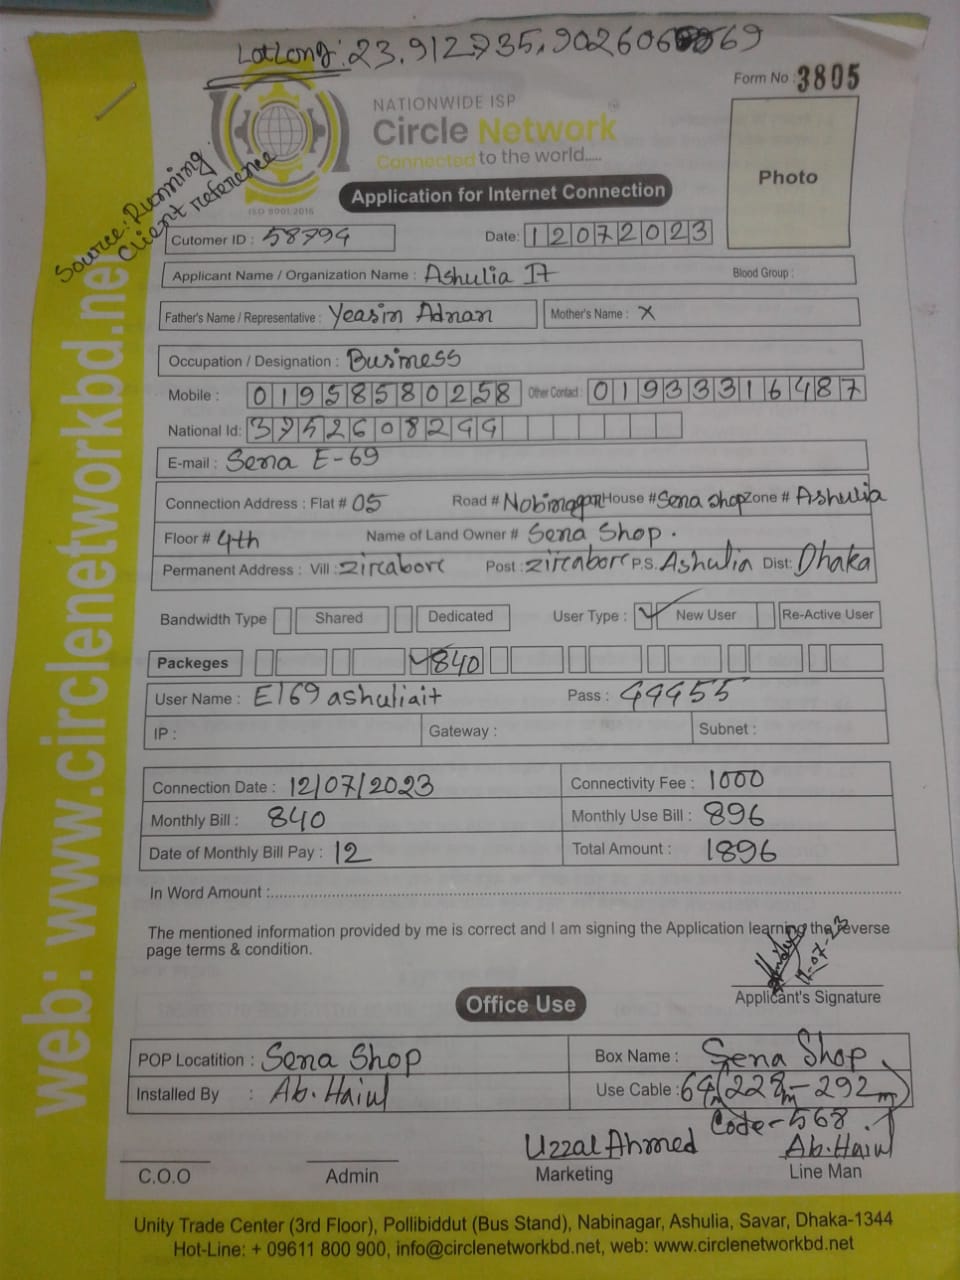 LatLong: 23.912735,90.26060569
Form No : 3805
NATIONWIDE ISP
Circle Network
Connected to the world.....
ISO 9001:2015
Photo
Source: Running
Client reference
Application for Internet Connection
Cutomer ID : 58794 Date: 12072023
Applicant Name / Organization Name : Ashulia It Blood Group :
Father's Name / Representative : Yeasin Adnan Mother's Name : X
Occupation / Designation : Business
Mobile : 01958580258 Other Contact : 01933316487
National Id: 3752608299
E-mail : Sena E-69
Connection Address : Flat # 05 Road # House # Sena Shop Zone # Ashulia
Floor # 4th Name of Land Owner # Sena Shop.
Permanent Address : Vill : Zircaborc Post : Zircaborc P.S. Ashulia Dist: Dhaka
Bandwidth Type Shared Dedicated User Type : ✓ New User Re-Active User
Packeges ✓ 840
User Name : E169ashuliait Pass : 99955
IP : Gateway : Subnet :
Connection Date : 12/07/2023 Connectivity Fee : 1000
Monthly Bill : 840 Monthly Use Bill : 896
Date of Monthly Bill Pay : 12 Total Amount : 1896
In Word Amount :
The mentioned information provided by me is correct and I am signing the Application learning the reverse
page terms & condition.
Applicant's Signature
Office Use
POP Locatition : Sena Shop Box Name : Sena Shop
Installed By : Ab. Haiul Use Cable : 64m (228m - 292m)
Code-568.
Uzzal Ahmed Ab. Haiul
C.O.O Admin Marketing Line Man
Unity Trade Center (3rd Floor), Pollibiddut (Bus Stand), Nabinagar, Ashulia, Savar, Dhaka-1344
Hot-Line: + 09611 800 900, info@circlenetworkbd.net, web: www.circlenetworkbd.net
web: www.circlenetworkbd.net